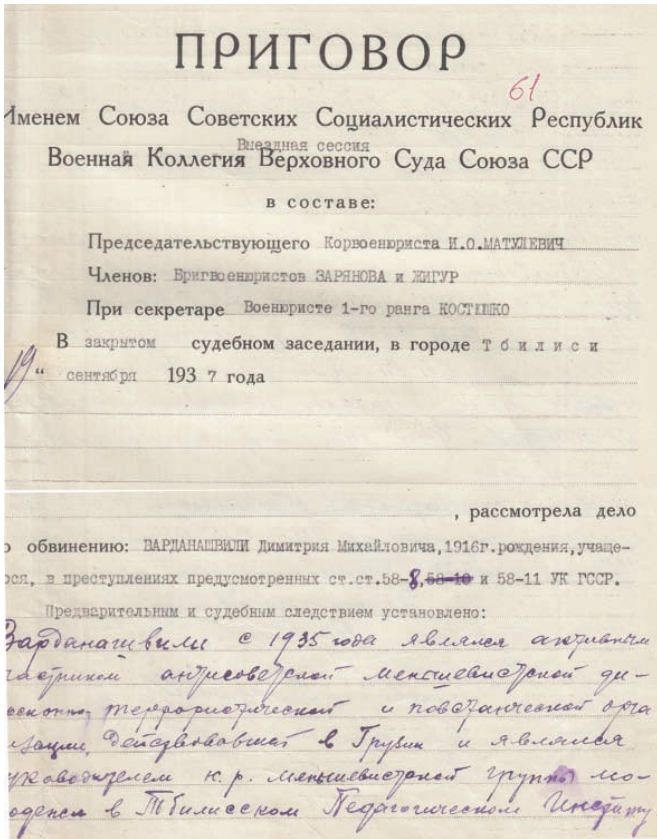 ПРИГОВОР
61
Именем Союза Советских Социалистических Республик
Выездная сессия
Военная Коллегия Верховного Суда Союза ССР
в составе:
Председательствующего Корвоенюриста И.О.МАТУЛЕВИЧ
Членов: Бригвоенюристов ЗАРЯНОВА и ЖИГУР
При секретаре Военюристе 1-го ранга КОСТЮШКО
В закрытом судебном заседании, в городе Тбилиси
19 " сентября 1937 года
, рассмотрела дело
о обвинению: ВАРДАНАШВИЛИ Димитрия Михайловича, 1916г.рождения, учаще-
ося, в преступлениях предусмотренных ст.ст.58-8, 58-10 и 58-11 УК ГССР.
Предварительным и судебным следствием установлено:
Варданашвили с 1935 года являлся активным
частником антисоветской меньшевистской ди-
ерсионно, террористической и повстанческой орга
изации, действовавшей в Грузии и являлся
уководителем к.р. меньшевистской группы мо-
одежи в Тбилисском Педагогическом Институ